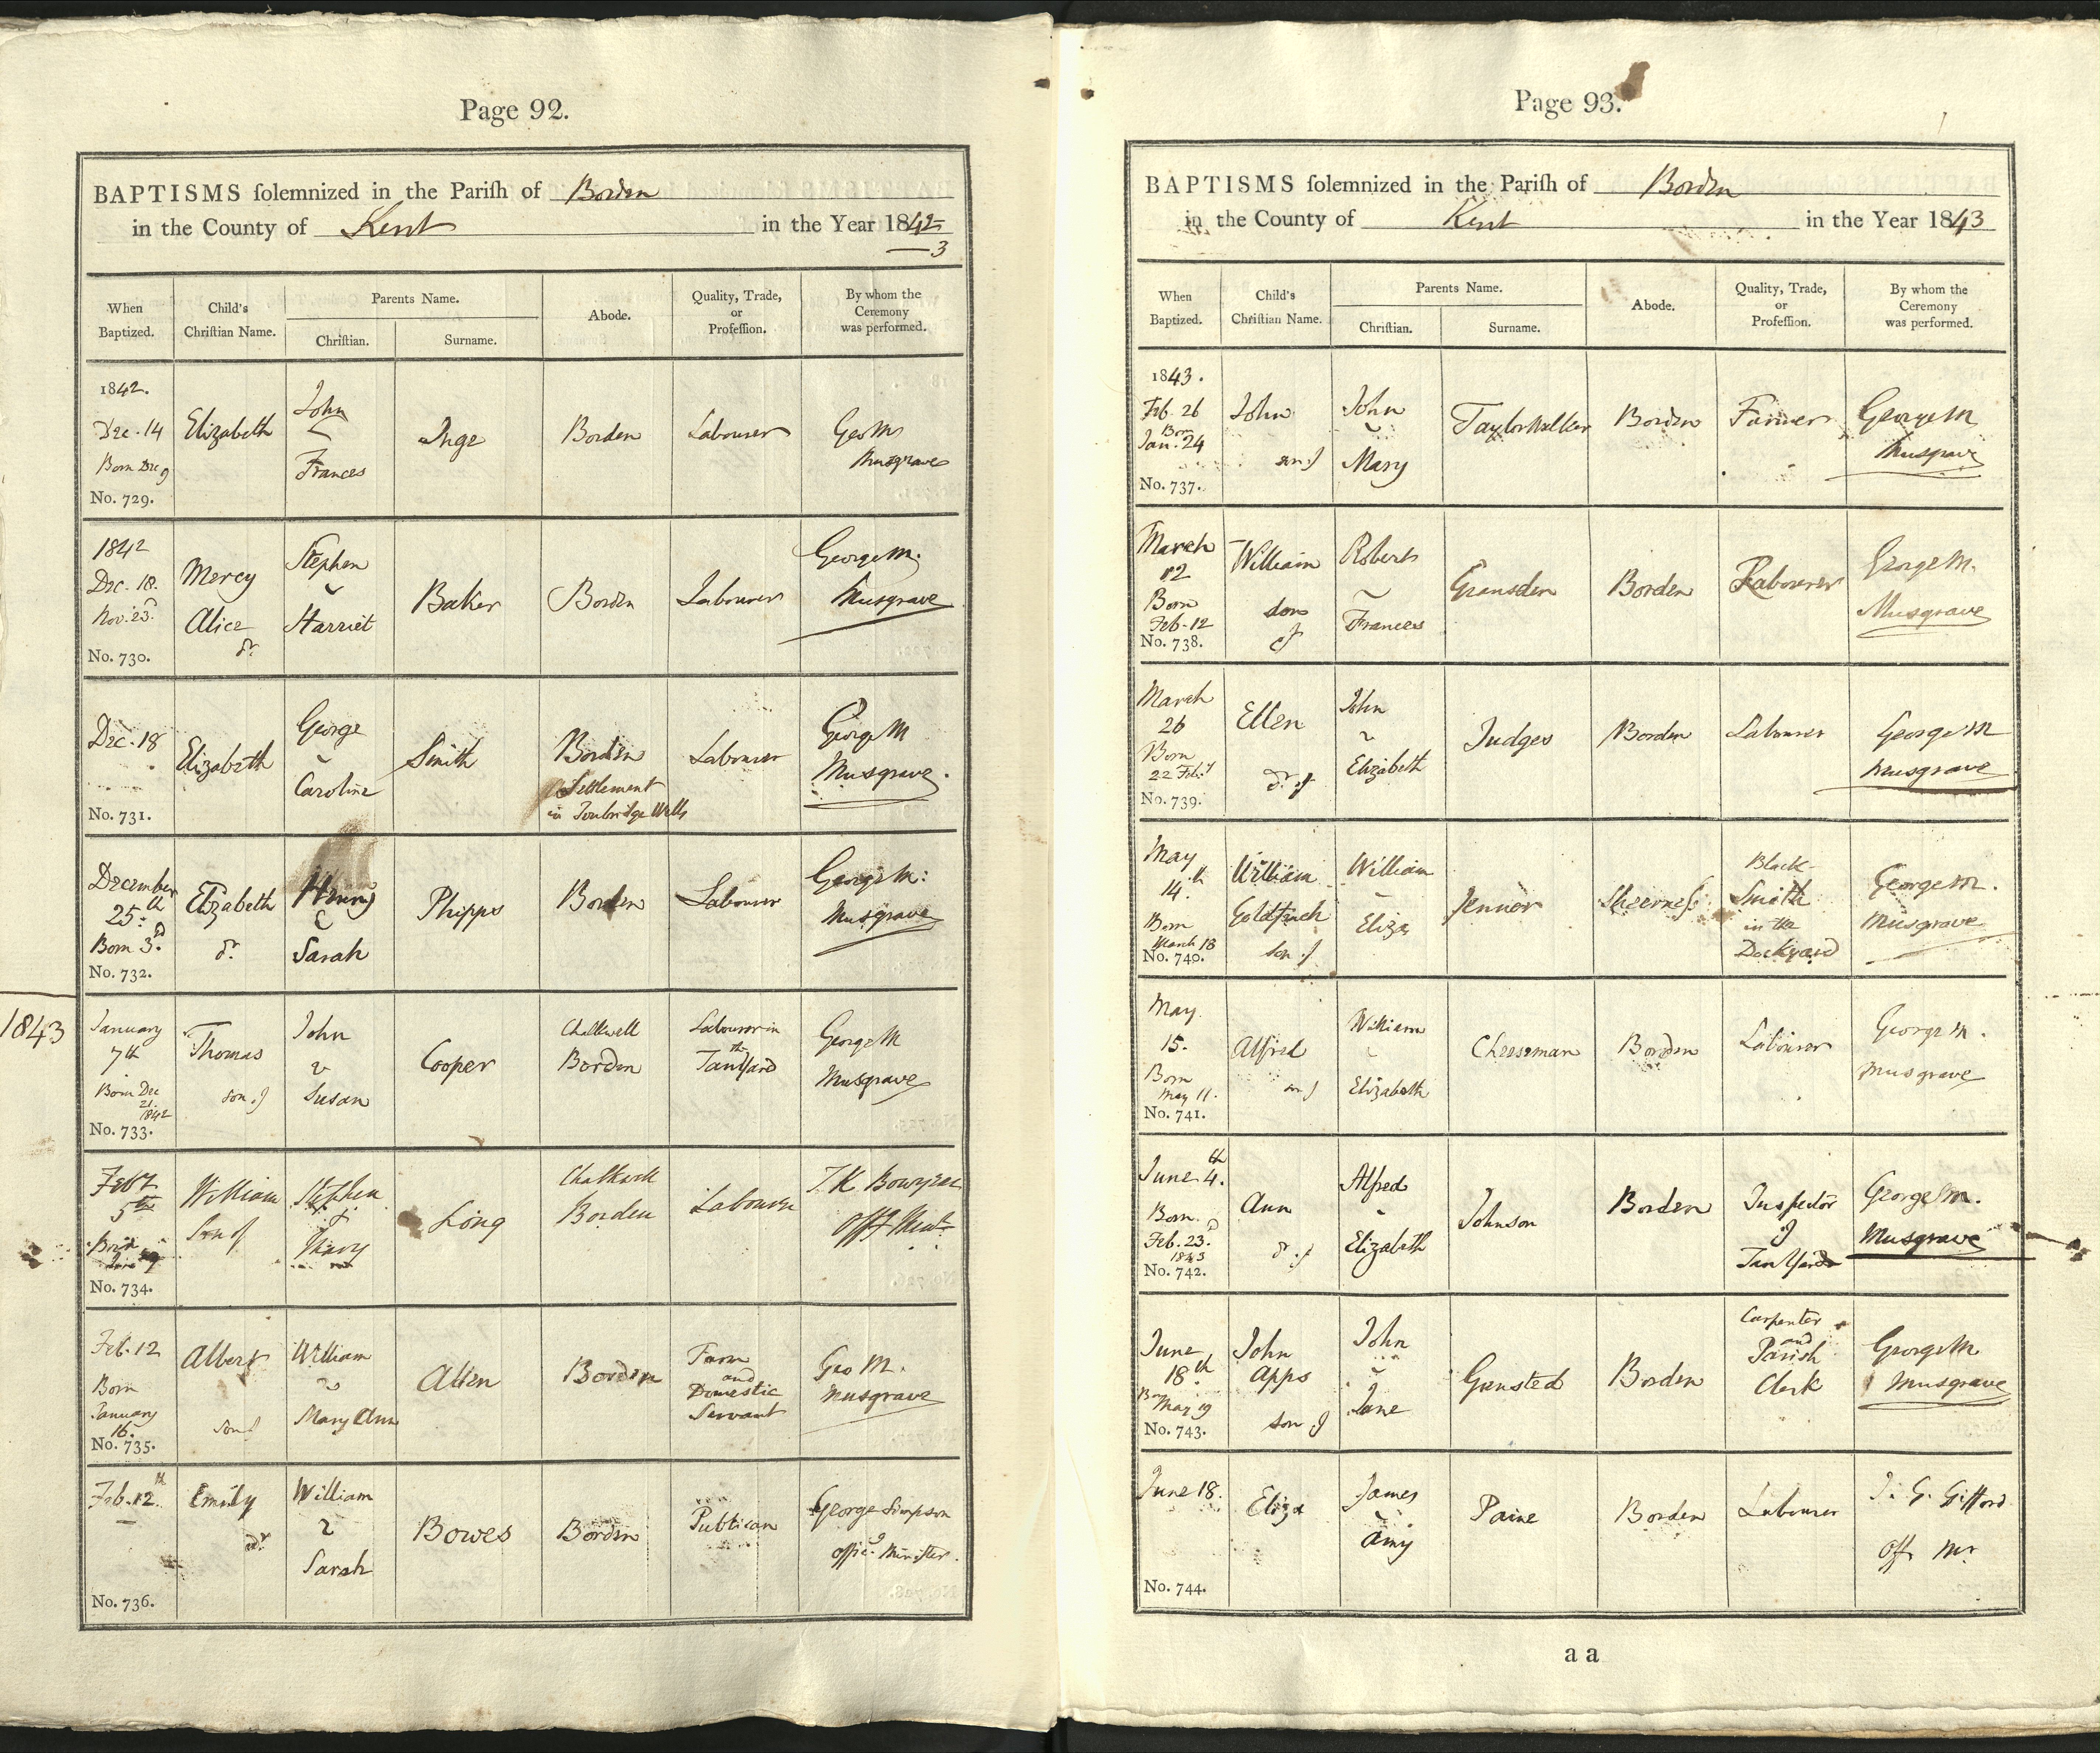 Page 92.
BAPTISMS solemnized in the Parish of Borden
in the County of Kent in the Year 1842-
3
When
Baptized.
Child's
Christian Name.
Parents Name.
Christian.
Surname.
Abode.
Quality, Trade,
or
Profession.
By whom the
Ceremony
was performed.
1842.
Dec. 14
Born Dec 9
No. 729.
Elizabeth
John
&
Frances
Inge
Borden
Labourer
Geo M
Musgrave
1842
Dec. 18.
Nov. 23d
No. 730.
Mercy
Alice
dr.
Stephen
&
Harriet
Baker
Borden
Labourer
George M.
Musgrave
Dec. 18
No. 731.
Elizabeth
George
&
Caroline
Smith
Borden
Settlement
in Tonbridge Wells
Labourer
George M
Musgrave.
December
25th
Born 3d.
No. 732.
Elizabeth
dr.
Henry
&
Sarah
Phipps
Borden
Labourer
George M:
Musgrave
1843
January
7th
Born Dec
21.
1842
No. 733.
Thomas
son of
John
&
Susan
Cooper
Chalkwell
Borden
Labourer in
the
TanYard
George M
Musgrave
Feby
5th
Born
No. 734.
William
Son of
Stephen
&
Mary
Long
Chalkwell
Borden
Labourer
T. K. Bowyear
Offg Minr
Feb. 12
Born
January
16.
No. 735.
Albert
son of
William
&
Mary Ann
Allen
Borden
Farm
and
Domestic
Servant
Geo M.
Musgrave
Feb. 12.th
No. 736.
Emily
dr
William
&
Sarah
Bowes
Borden
Publican
George Simpson
Offic.g Minister.
Page 93.
BAPTISMS solemnized in the Parish of Borden
in the County of Kent in the Year 1843
When
Baptized.
Child's
Christian Name.
Parents Name.
Christian.
Surname.
Abode.
Quality, Trade,
or
Profession.
By whom the
Ceremony
was performed.
1843.
Feb. 26
Born
Jan. 24
No. 737.
John
son of
John
&
Mary
Taylor Walker
Borden
Farmer
George M
Musgrave
March
12
Born
Feb. 12
No. 738.
William
son
of
Robert
&
Frances
Gransden
Borden
Labourer
George M.
Musgrave
March
26
Born
22 Feby
No. 739.
Ellen
dr. of
John
&
Elizabeth
Judges
Borden
Labourer
George M
Musgrave
May
14.th
Born
March 18
No. 740.
William
Goldfinch
son of
William
&
Eliza
Jenner
Sheerness
Black
Smith
in the
Dockyard
George M.
Musgrave
May.
15.
Born
May 11.
No. 741.
Alfred
son of
William
&
Elizabeth
Cheeseman
Borden
Labourer
George M.
Musgrave
June 4.th
Born.
Feb. 23.d
1843
No. 742.
Ann
dr. of
Alfred
&
Elizabeth
Johnson
Borden
Inspector
of
TanYard
George M.
Musgrave
June
18th
Born
May 19
No. 743.
John
Apps
son of
John
&
Jane
Gensted
Borden
Carpenter
and
Parish
Clerk
George M
Musgrave
June 18.
No. 744.
Eliza
James
&
Amy
Paine
Borden
Labourer
J. G. Gifford
Offg Mr
a a